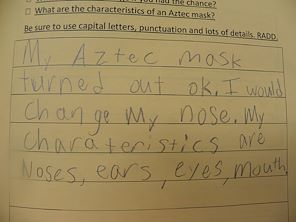 if you had the chance?
□ What are the characteristics of an Aztec mask?
Be sure to use capital letters, punctuation and lots of details. RADD.
My Aztec mask
turned out ok. I would
change My nose. My
charateristics are
Noses, ears, eyes, mouth,